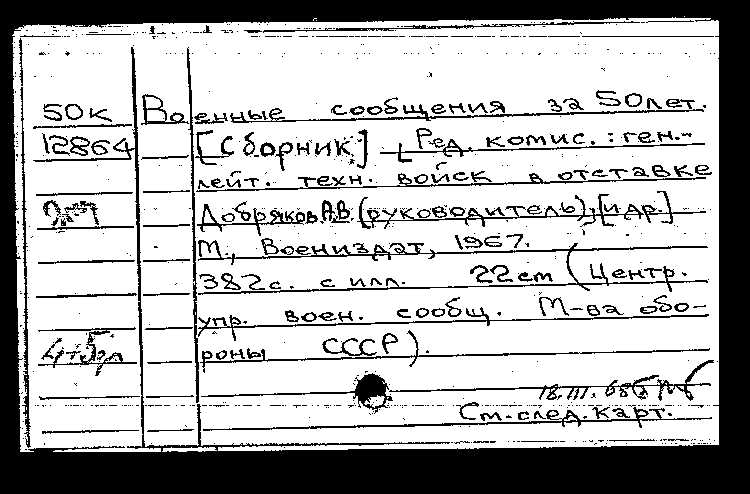 50К Военные сообщения за 50 лет.
12864 [Сборник] [Ред. комис.: ген.-
лейт. техн. войск в отставке
Добряков А.В. (руководитель), [и др.]
М., Воениздат, 1967.
382 с. с илл. 22 см (Центр.
упр. воен. сообщ. М-ва обо-
роны СССР).
18.III.68
См. след. карт.